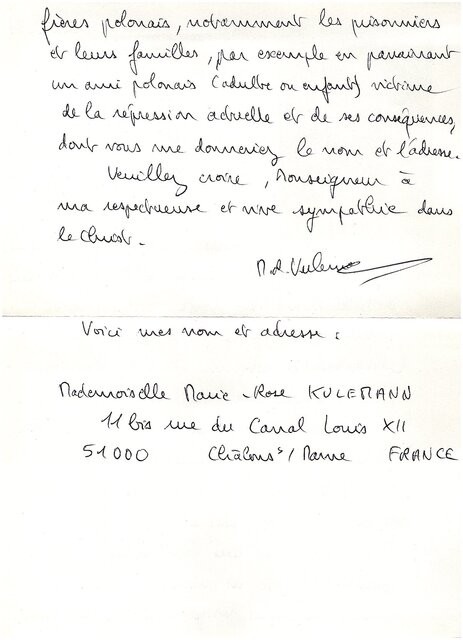 frères polonais, notamment les prisonniers
et leurs familles, par exemple en parrainant
un ami polonais (adulte ou enfant) victime
de la répression actuelle et de ses conséquences,
dont vous me donneriez le nom et l'adresse.
Veuillez croire, Monseigneur à
ma respectueuse et vive sympathie dans
le Christ.
M.R. Kulemann
Voici mes nom et adresse :
Mademoiselle Marie-Rose KULEMANN
11 bis rue du Canal Louis XII
51000 Châlons s/ Marne FRANCE